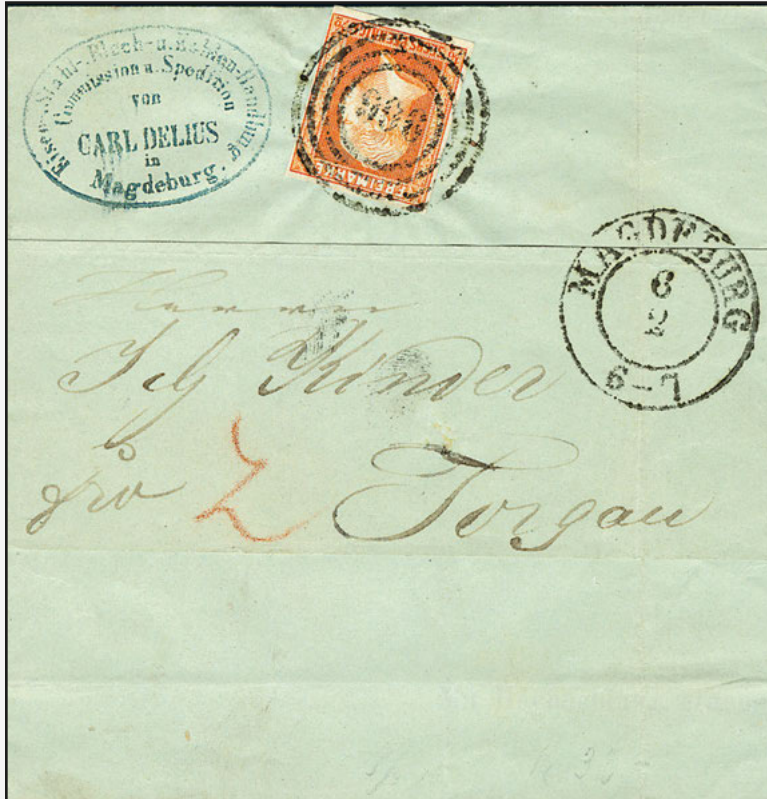 Eisen-Stahl-Blech-u.Kohlen-Handlung
Commission u. Spedition
von
CARL DELIUS
in
Magdeburg.
FREIMARKE
MAGDEBURG
6
2
6-7
Herrn
Kinder
fro
Torgau